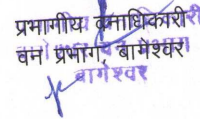 प्रभागीय वनाधिकारी
वन प्रभाग, बागेश्वर
बागेश्वर